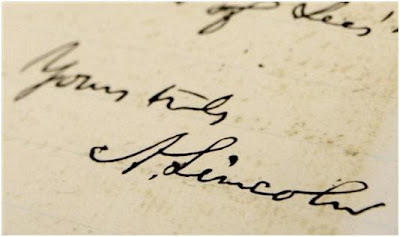 of Lee's
Yours truly
A. Lincoln